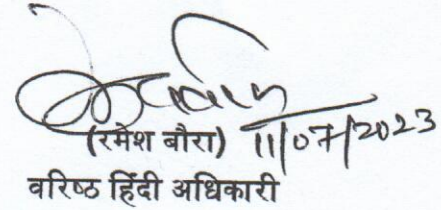 (रमेश बौरा) 11/07/2023
वरिष्ठ हिंदी अधिकारी